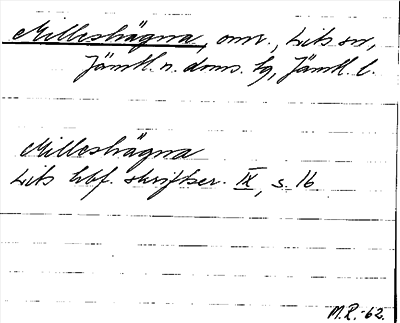 Milleshägna, omr., Lits sn,
Jämtl. n. doms. tg, Jämtl. l.
Milleshägna
Lits hbf. skriftser. IX, s. 16
M.R.-62.